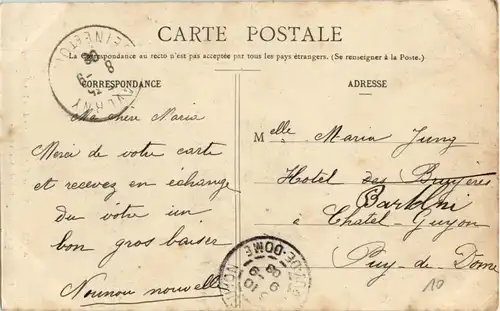 CARTE POSTALE
La Correspondance au recto n'est pas acceptée par tous les pays étrangers. (Se renseigner à la Poste.)
CORRESPONDANCE
Ma chère Maria
Merci de votre carte
et recevez en échange
du vôtre un
bon gros baiser
Nounou nouvelle
ADRESSE
Melle Maria Jung
Hotel des Bruyères
à Chatel-Guyon
Puy-de-Dome
10
PUY-DE-DOME